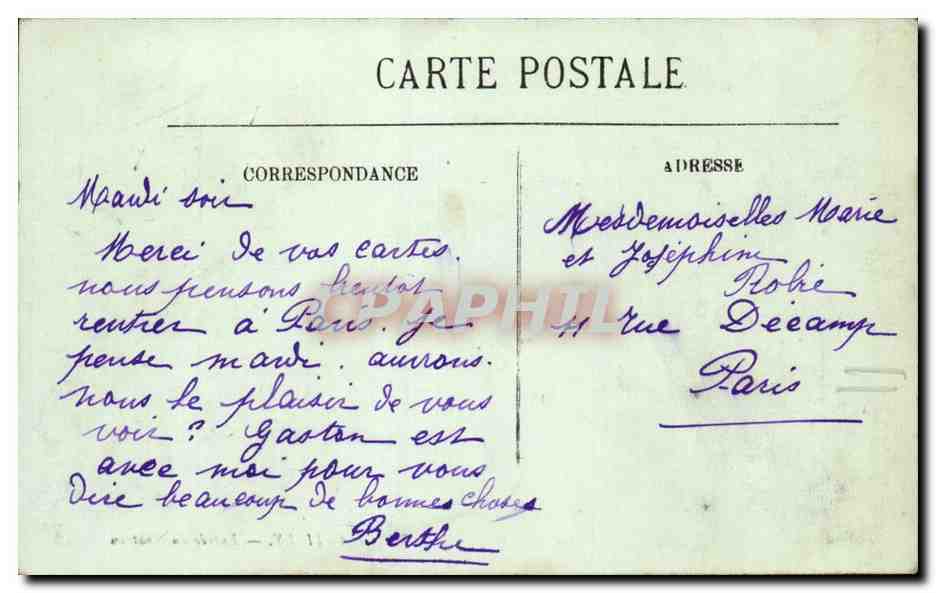 CARTE POSTALE
CORRESPONDANCE
Mardi soir
Merci de vos cartes.
nous pensons bientôt
rentrer à Paris. je
pense mardi. aurons-
nous le plaisir de vous
voir? Gaston est
avec moi pour vous
dire beaucoup de bonnes choses
Berthe
ADRESSE
Mesdemoiselles Marie
et Joséphine
Robie
11 rue Decamp
Paris
CPAPHIL